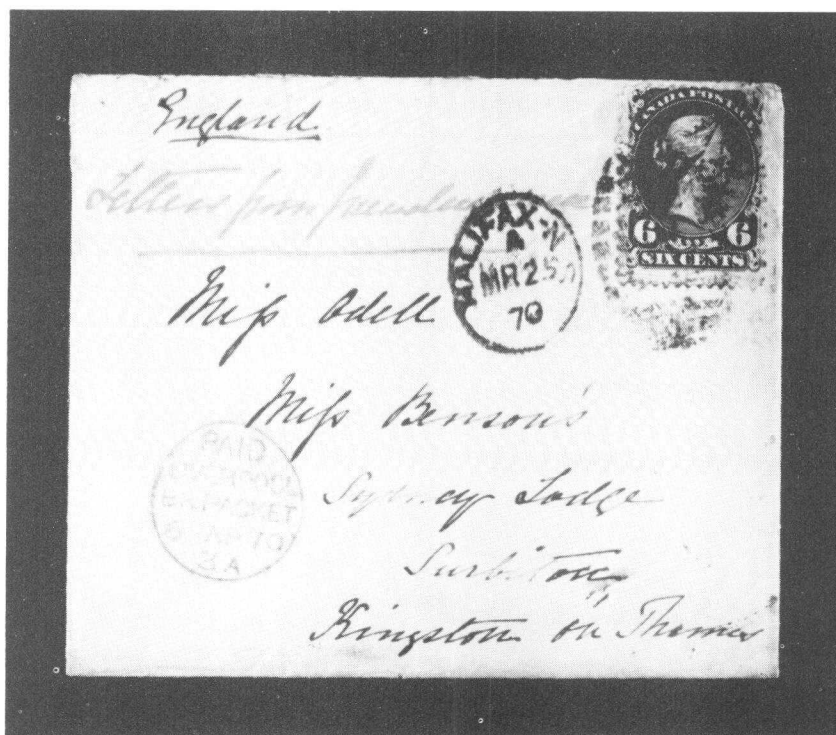 England
CANADA POSTAGE
6 6
SIX CENTS
Letters from
HALIFAX N
A
MR 25
70
Miss Odell
Miss Benson's
PAID
LIVERPOOL
BR. PACKET
5 AP 70
3A
Sydney Lodge
Surbiton
Kingston on Thames